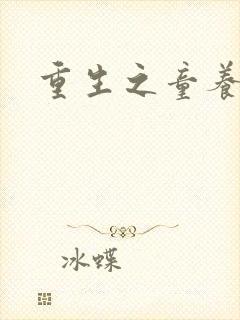 重生之童養
冰蝶